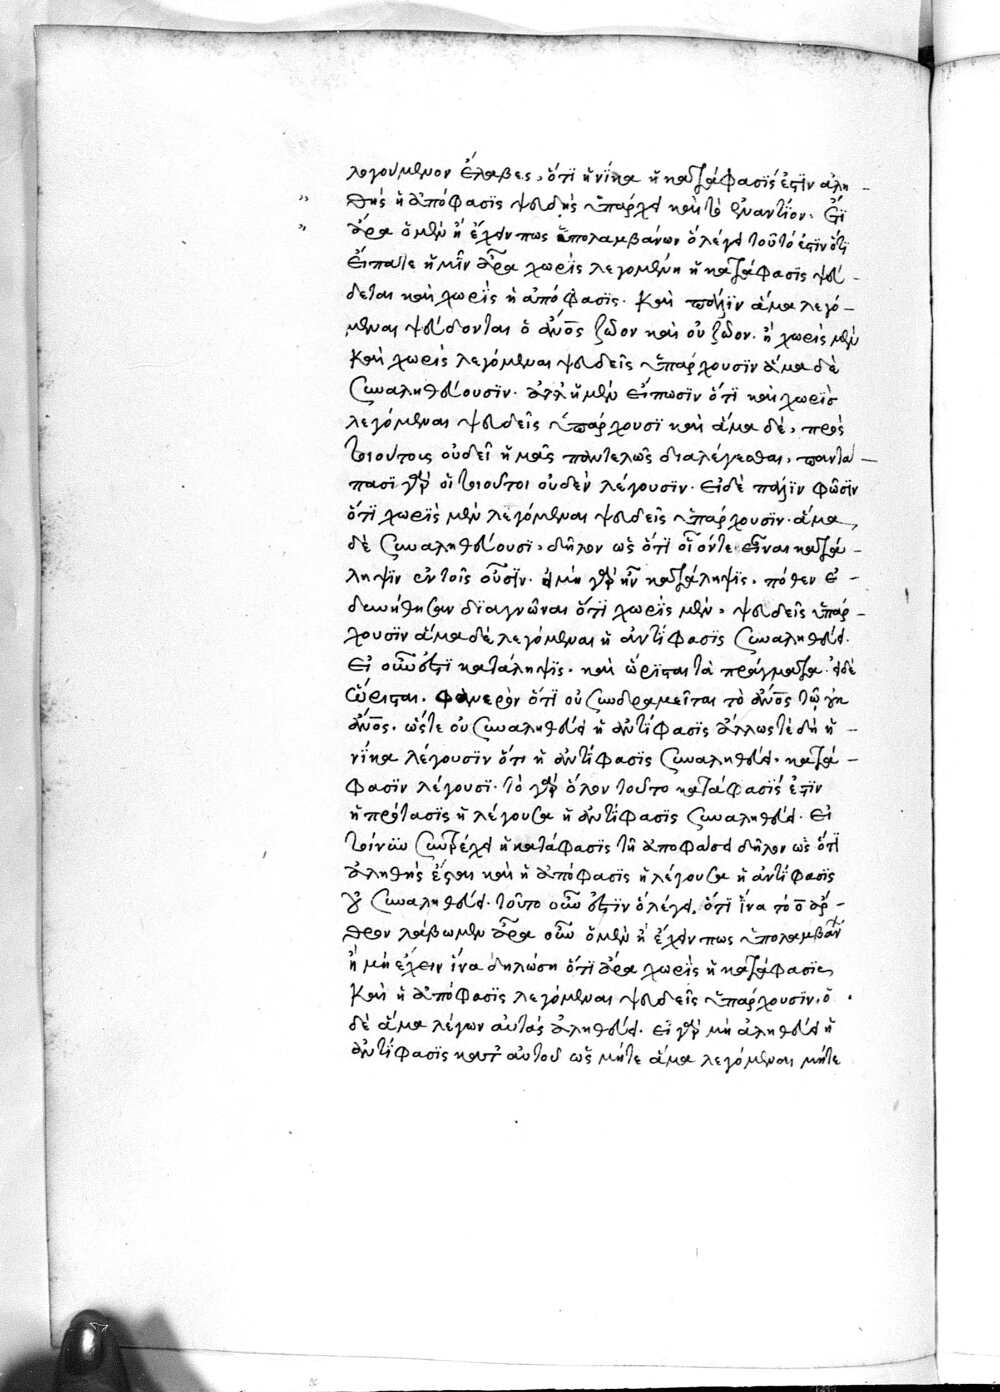 λογούμενον ἔλαβες, ὅτι ἡνίκα ἡ κατάφασίς ἐστιν ἀλη
θής ἡ ἀπόφασις ψευδής ὑπάρχει καὶ τὸ ἐναντίον. Εἰ
ἄρα ὁ μὲν ἢ ἔχειν πως ὑπολαμβάνων ὃ λέγει τοῦτό ἐστιν ὅτι
εἴπατε ἡμῖν ἆρα χωρὶς λεγομένη ἡ κατάφασις ψεύ
δεται καὶ χωρὶς ἡ ἀπόφασις. Καὶ πάλιν ἅμα λεγό
μεναι ψεύδονται ὁ ἄνος ζῶον καὶ οὐ ζῶον. ἢ χωρὶς μὲν
καὶ χωρὶς λεγόμεναι ψευδεῖς ὑπάρχουσιν ἅμα δὲ
συναληθεύουσιν. ἀλλ' ἢ μὲν εἴπωσιν ὅτι καὶ χωρὶς
λεγόμεναι ψευδεῖς ὑπάρχουσι καὶ ἅμα δέ, πρὸς
τοιούτοις οὐδεῖ ἡμᾶς παντελῶς διαλέγεσθαι, παντά
πασι γὰρ οἱ τοιοῦτοι οὐδὲν λέγουσιν. εἰ δὲ πάλιν φῶσιν
ὅτι χωρὶς μὲν λεγόμεναι ψευδεῖς ὑπάρχουσιν. ἅμα
δὲ συναληθεύουσι, δῆλον ὡς ὅτι οἴονται εἶναι κατά
ληψιν ἐν τοῖς οὖσιν. εἰ μὴ γὰρ ἦν κατάληψις. πόθεν ἐ
δυνήθησαν διαγνῶναι ὅτι χωρὶς μὲν, ψευδεῖς ὑπάρ
χουσιν ἅμα δὲ λεγόμεναι ἡ ἀντίφασις συναληθεύει.
εἰ οὖν ἔστι κατάληψις. καὶ ὥρισται τὰ πράγματα. εἰ δὲ
ὥρισται. φανερὸν ὅτι οὐ συνδραμεῖται τὸ ἄνος τῷ μὴ
ἄνος. ὥστε οὐ συναληθεύει ἡ ἀντίφασις ἄλλως τε δὴ ἡ
νίκα λέγουσιν ὅτι ἡ ἀντίφασις συναληθεύει. κατά
φασιν λέγουσι. τὸ γὰρ ὅλον τοῦτο κατάφασίς ἐστιν
ἡ πρότασις ἡ λέγουσα ἡ ἀντίφασις συναληθεύει. εἰ
τοίνυν συντρέχει ἡ κατάφασις τῇ ἀποφάσει δῆλον ὡς ὅτι
ἀληθὴς ἔσται καὶ ἡ ἀπόφασις ἡ λέγουσα ἡ ἀντίφασις
οὐ συναληθεύει. τοῦτο οὖν ἐστιν ὃ λέγει, ὅτι ἵνα τὸ ο ἄρ
θρον λάβωμεν ἆρα οὖν ὁ μὲν ἢ ἔχειν πως ὑπολαμβάν
ἢ μὴ ἔχειν ἵνα δηλώσῃ ὅτι ἆρα χωρὶς ἡ κατάφασις
καὶ ἡ ἀπόφασις λεγόμεναι ψευδεῖς ὑπάρχουσιν. ὁ
δὲ ἅμα λέγων αὐτὰς ἀληθεύει. εἰ γὰρ μὴ ἀληθεύει ἡ
ἀντίφασις κατ' αὐτοῦ ὡς μήτε ἅμα λεγόμεναι μήτε